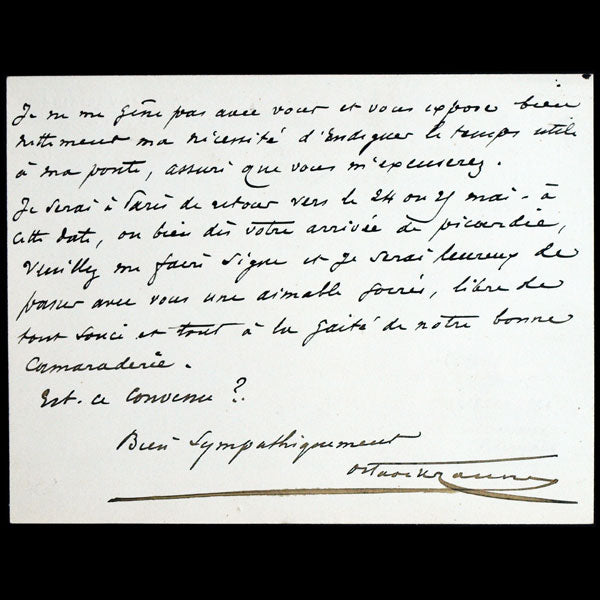 Je ne me gêne pas avec vous et vous expose bien
nettement ma nécessité d'Endiguer le temps utile
à ma ponte, assuré que vous m'excuserez.
Je serai à Paris de retour vers le 24 ou 25 mai - à
cette date, ou bien dès votre arrivée de picardie,
Veuillez me faire signe et je serai heureux de
passer avec vous une aimable soirée, libre de
tout souci et tout à la gaité de notre bonne
Camaraderie.
Est-ce Convenu ?
Bien Sympathiquement
Octave Uzanne